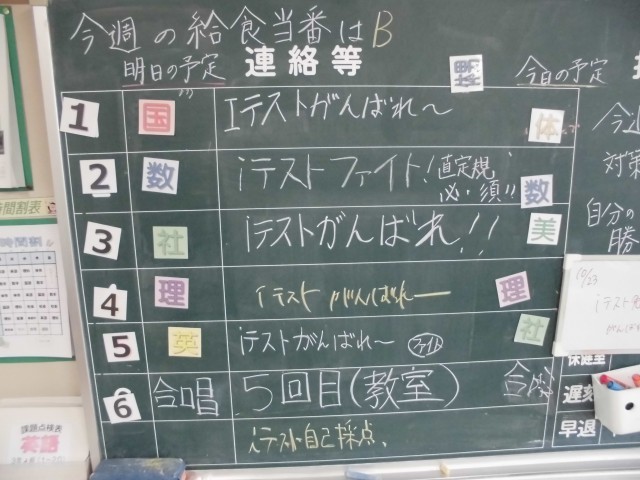 今週の給食当番はB
明日の予定 連絡等 今日の予定
1 国 iテストがんばれ〜 体
2 数 iテストファイト! 直定規 必・須!! 数
3 社 iテストがんばれ!! 美
4 理 iテストがんばれー 理
5 英 iテストがんばれ〜 ファイト 社
6 合唱 5回目(教室) 合
iテスト自己採点、
今
対策
自分の
勝
10/23
iテスト
がんば
保健室
遅刻
早退
時間割表
時間割
課題点検表
英語